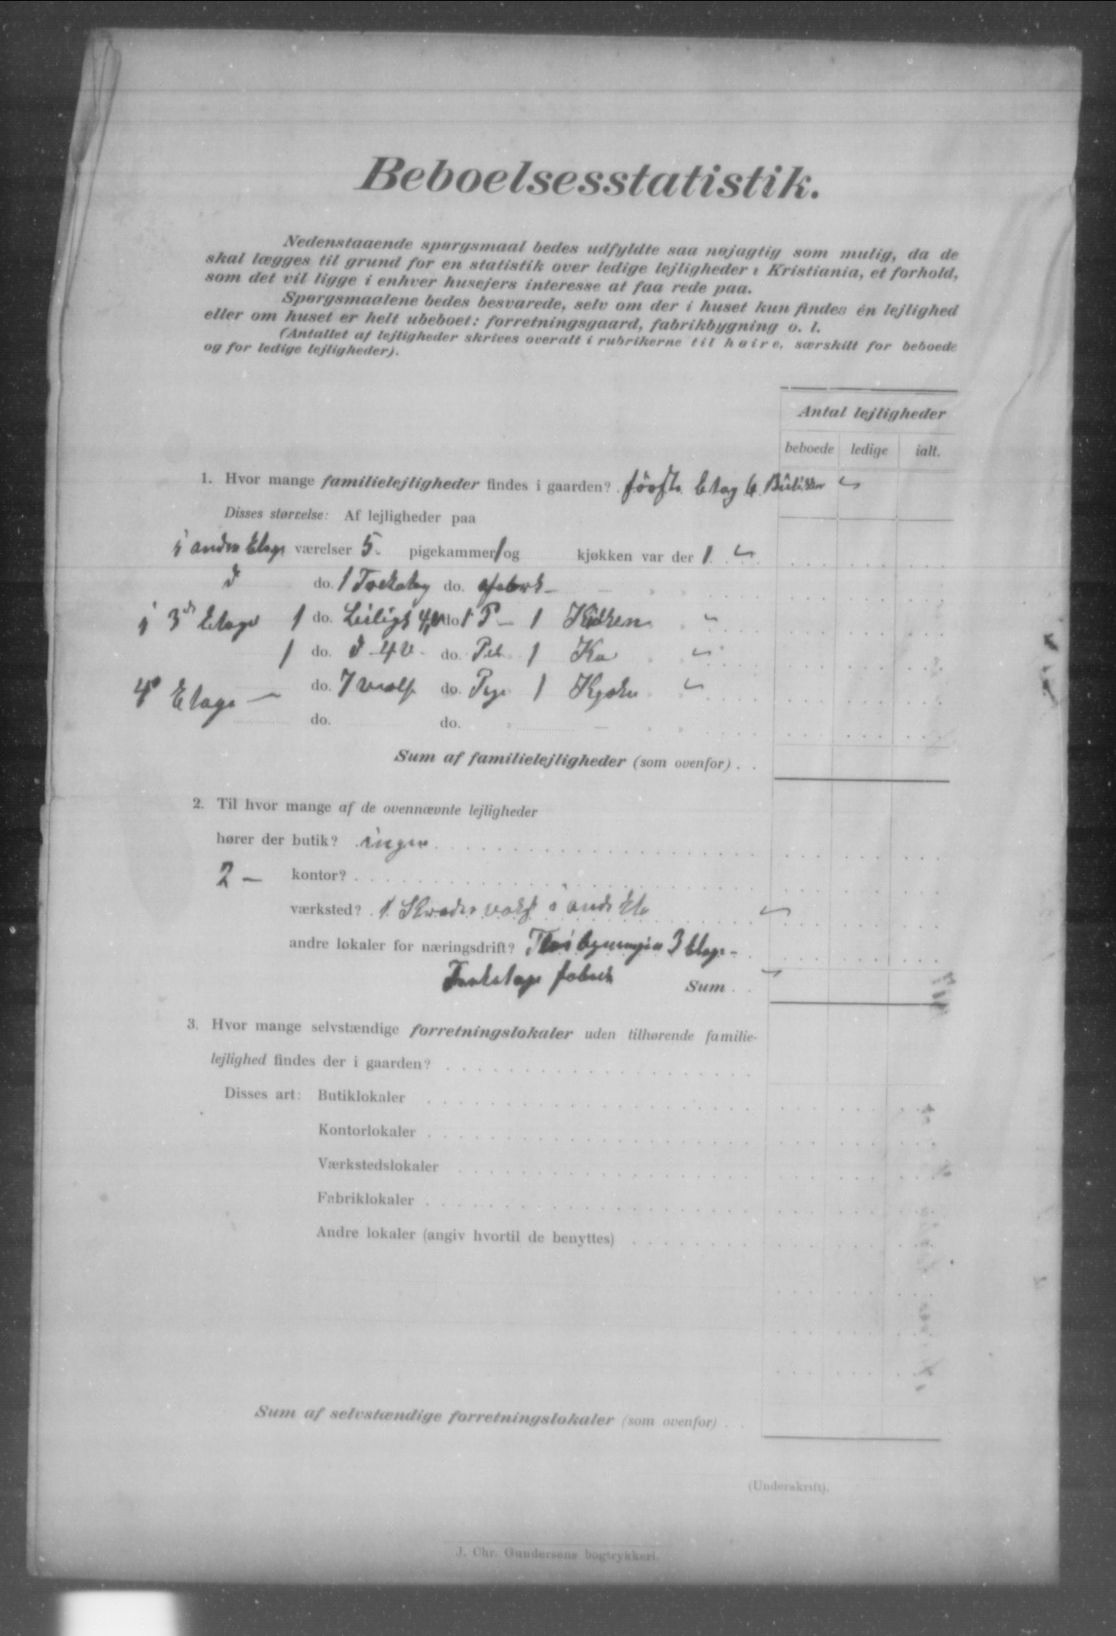 Beboelsesstatistik.
Nedenstaaende spørgsmaal bedes udfyldte saa nøjagtig som mulig, da de
skal lægges til grund for en statistik over ledige lejligheder i Kristiania, et forhold,
som det vil ligge i enhver husejers interesse at faa rede paa.
Spørgsmaalene bedes besvarede, selv om der i huset kun findes én lejlighed
eller om huset er helt ubeboet: forretningsgaard, fabrikbygning o. l.
(Antallet af lejligheder skrives overalt i rubrikerne til høire, særskilt for beboede
og for ledige lejligheder).
Antal lejligheder
beboede ledige ialt.
1. Hvor mange familielejligheder findes i gaarden? Etag 6
Disses størrelse: Af lejligheder paa
i andre Etage værelser 5 pigekammer 1 og kjøkken var der 1
do. 1 do.
i 3 Etage 1 do. do. 1 P 1
1 do. 4 V do. 1
4 Etage do. 7 do. 1
do. do.
Sum af familielejligheder (som ovenfor)
2. Til hvor mange af de ovennævnte lejligheder
hører der butik? ingen
2 — kontor?
værksted? 1
andre lokaler for næringsdrift? 3 Etage
fabrik Sum
3. Hvor mange selvstændige forretningslokaler uden tilhørende familie-
lejlighed findes der i gaarden?
Disses art: Butiklokaler
Kontorlokaler
Værkstedslokaler
Fabriklokaler
Andre lokaler (angiv hvortil de benyttes)
Sum af selvstændige forretningslokaler (som ovenfor)
(Underskrift).
J. Chr. Gundersens bogtrykkeri.